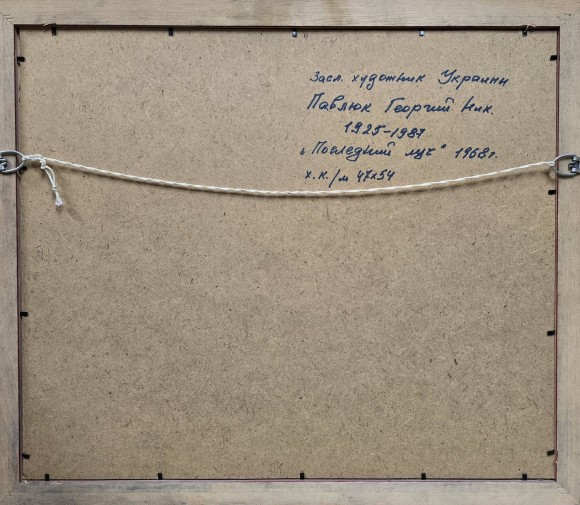 Засл. художник Украины
Павлюк Георгий Ник.
1925-1987
„Последний луч" 1968г.
х.к./м 47х54